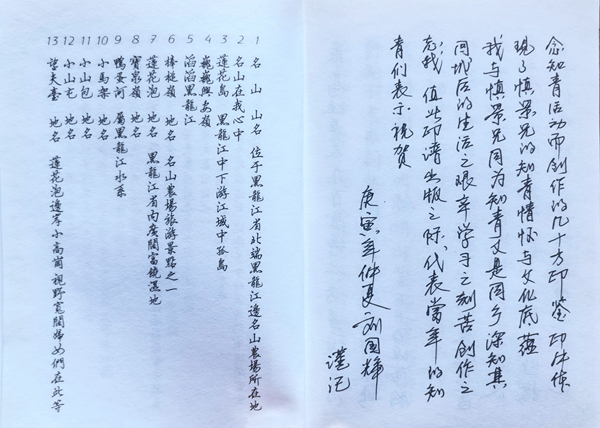 念知青活动而创作的几十方印鉴 印中体
现了慎景兄的知青情怀与文化底蕴
我与慎景兄因为知青又是同乡深知其
回城后的生活之艰辛学习之刻苦创作之
忘我。值此印谱出版之际，代表当年的知
青们表示祝贺
庚寅年仲夏 刘国辉
谨记
1 名山 山名 位于黑龍江省北端黑龍江邊名山農場所在地
2 名山在我心中
3 蓮花島 黑龍江中下游江域中孤島
4 巍巍興安嶺
5 滔滔黑龍江
6 棒槌嶺 地名 名山農場旅游景點之一
7 蓮花泡 地名 黑龍江省内廣闊富饒濕地
8 寶泉嶺 地名
9 鴨蛋河 屬黑龍江水系
10 小馬架 地名
11 小山包 地名
12 小山屯 地名
13 望夫臺 地名 蓮花泡邊岸小高崗視野寬闊婦女們在此等